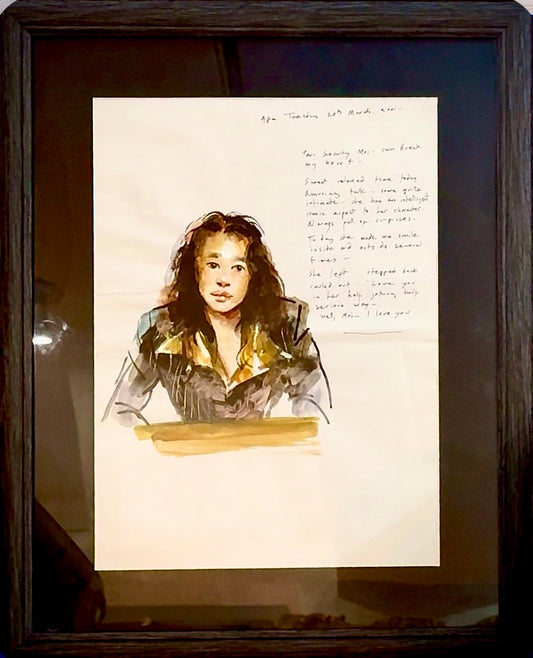 4pm Tuesday 20th March 2001 -
Your beauty Moi - can break
my heart -
Sweet relaxed time today
Amusing talk - some quite
intimate - she has an intelligent
ironic aspect to her character.
Always full of surprises -
Today she made me smile
inside and outside several
times -
She left stepped back
called out - 'Love you
in her half joking half
serious way -
Well, Moi - I love you